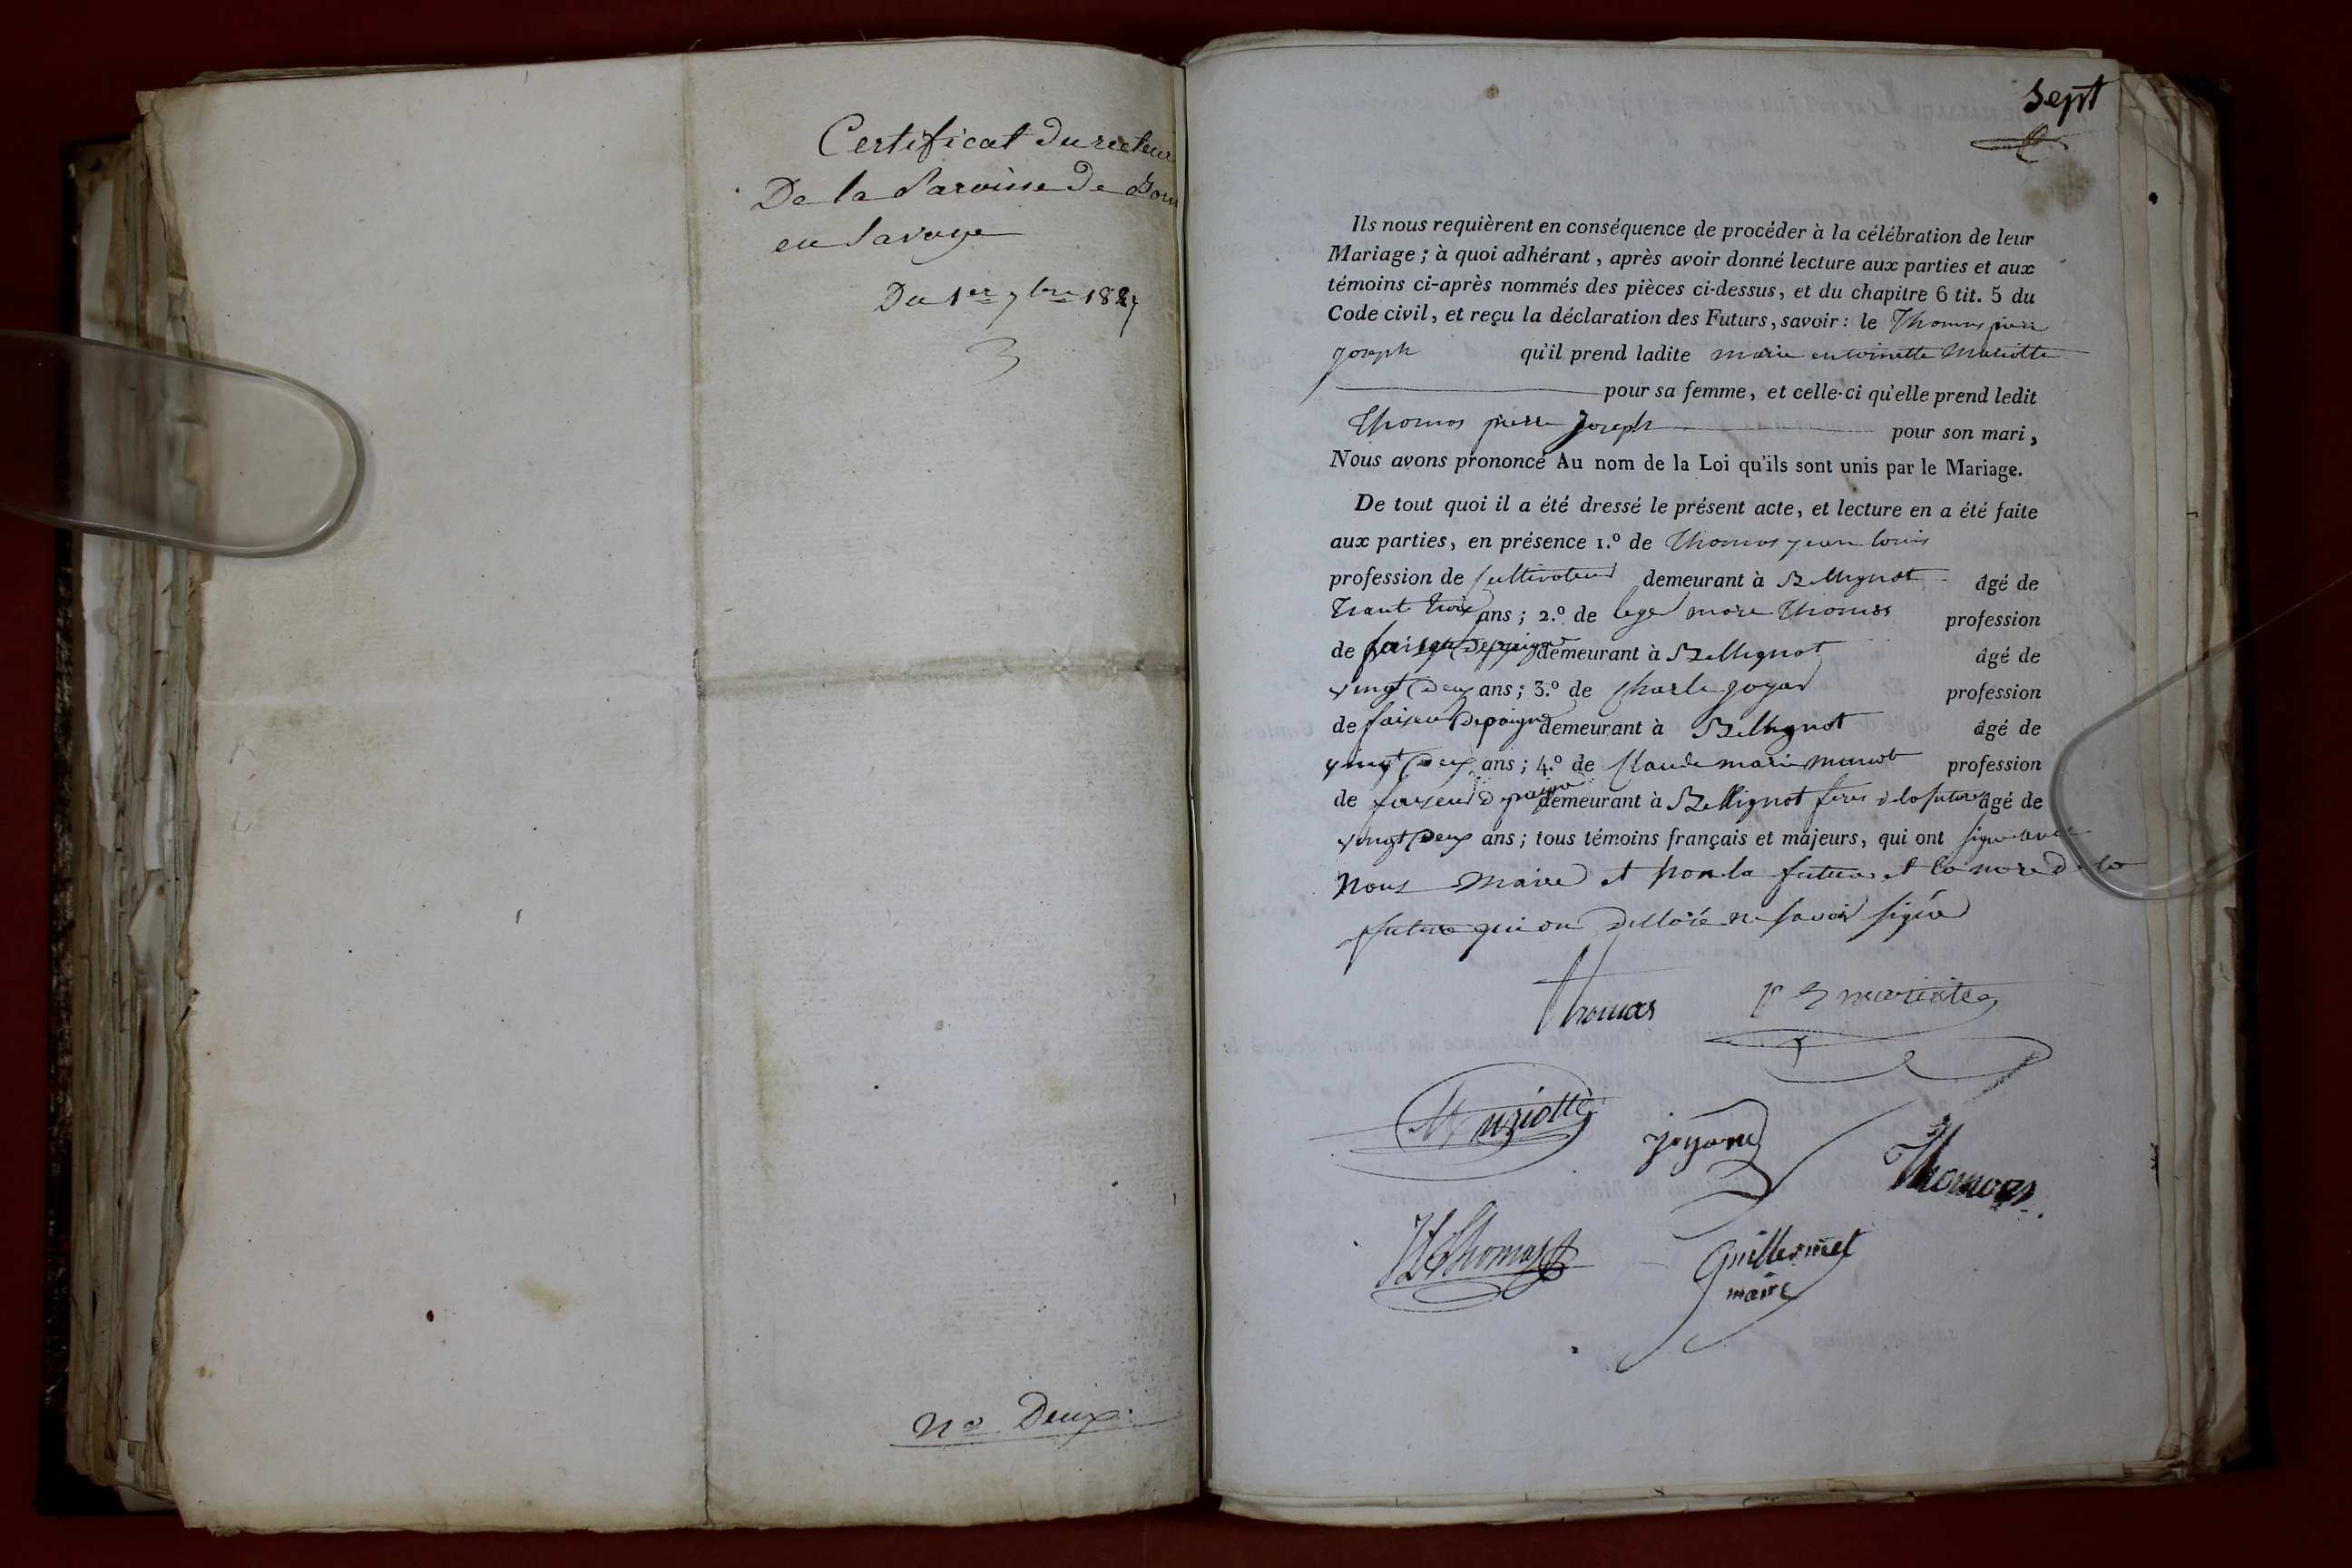 Certificat du recteur
De la Paroisse de
en Savoye
Du 1er 7bre 182
no Deux
Sept
Ils nous requièrent en conséquence de procéder à la célébration de leur
Mariage ; à quoi adhérant, après avoir donné lecture aux parties et aux
témoins ci-après nommés des pièces ci-dessus, et du chapitre 6 tit. 5 du
Code civil, et reçu la déclaration des Futurs, savoir : le Thomas pierre
joseph qu'il prend ladite marie antoinette Muriotte
pour sa femme, et celle-ci qu'elle prend ledit
Thomas pierre Joseph pour son mari,
Nous avons prononcé Au nom de la Loi qu'ils sont unis par le Mariage.
De tout quoi il a été dressé le présent acte, et lecture en a été faite
aux parties, en présence 1.º de Thomas jean louis
profession de cultivateur demeurant à Bellignat âgé de
trant trois ans ; 2.º de Thomas profession
de demeurant à Bellignat âgé de
vingt deux ans ; 3.º de Charle joyard profession
de faiseur depaigne demeurant à Bellignat âgé de
vingt deux ans ; 4.º de Claude marie profession
de faiseur depaigne demeurant à Bellignat âgé de
vingt deux ans ; tous témoins français et majeurs, qui ont signé avec
nous maire et non la future et la mere de la
future qui on ne savoir signé
Thomas
Muriotte
joyard
Thomas
Thomas
Guillermet
maire